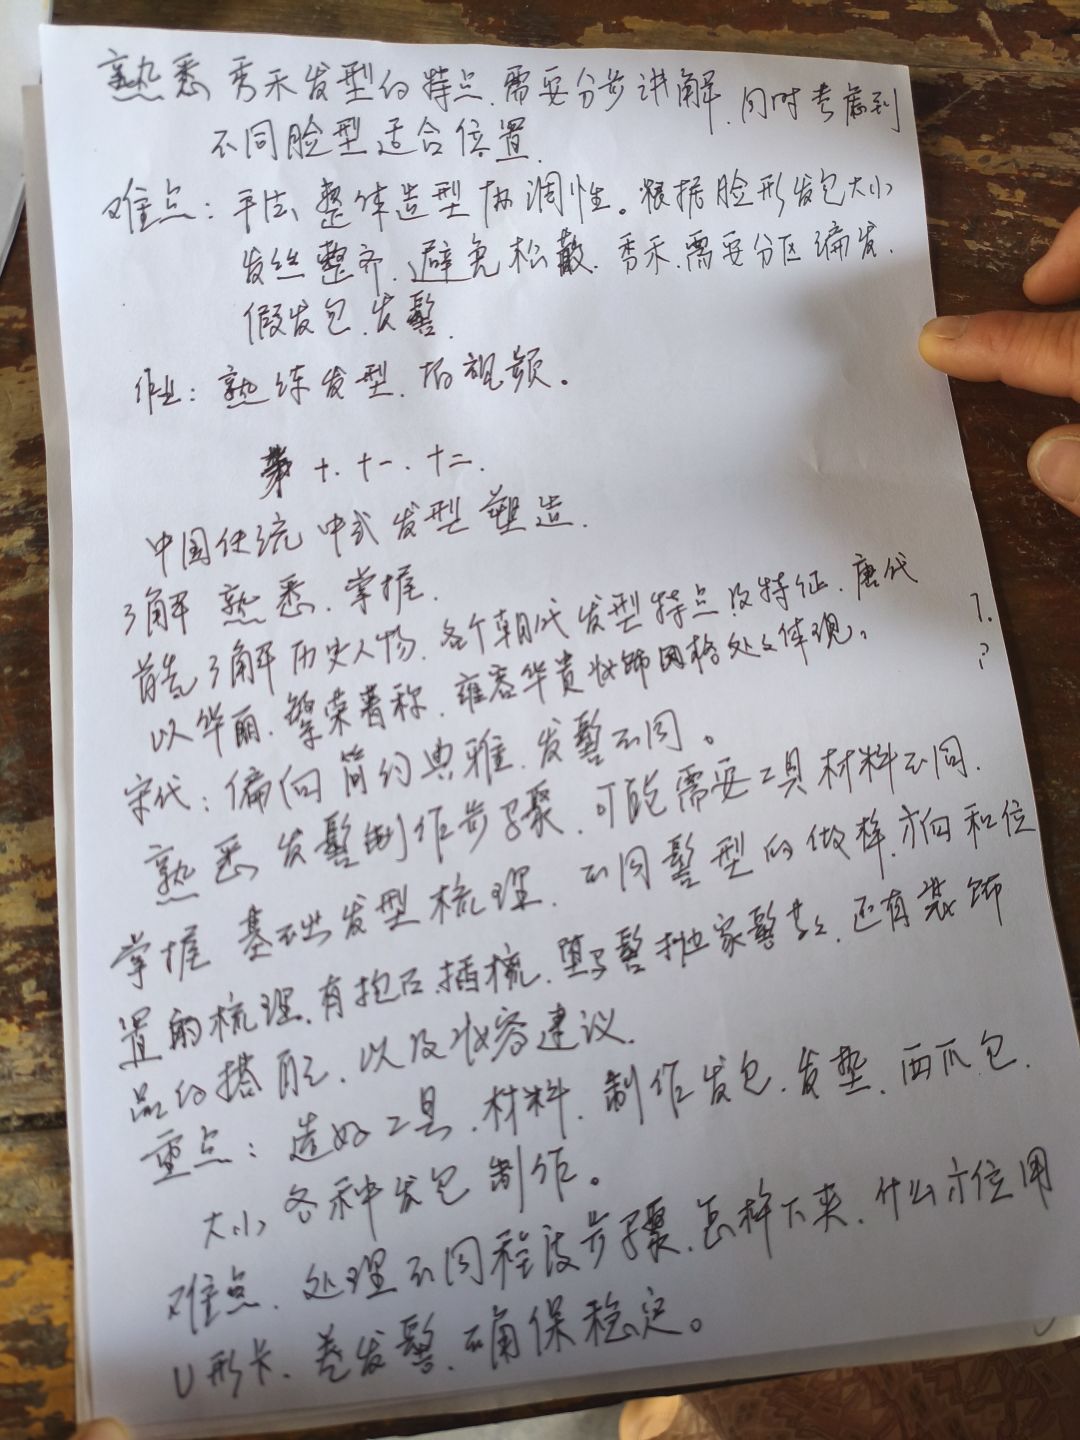 熟悉 秀禾发型的特点.需要分步讲解.同时考虑到
不同脸型适合位置.
难点：手法、整体造型协调性。根据脸形发包大小
发丝整齐.避免松散.秀禾.需要分区编发.
假发包.发髻.
作业：熟练发型.拍视频。
第十.十一.十二.
中国传统 中式发型塑造.
了解 熟悉.掌握.
首先了解历史人物.各个朝代发型特点及特征.唐代
以华丽.繁荣著称.雍容华贵妆饰风格处处体现。
宋代：偏向简约典雅.发髻不同。
熟悉 发髻制作步骤.可能需要工具材料不同.
掌握 基础发型梳理.不同髻型的做样.方向和位
置的梳理.有抱面.插梳.堕马髻抛家髻等.还有装饰
品的搭配.以及妆容建议.
重点：选好工具.材料.制作发包.发垫.西瓜包.
大小各种发包制作。
难点.处理不同程度步骤.怎样下夹.什么方位用
U形卡.卷发髻.确保稳定。